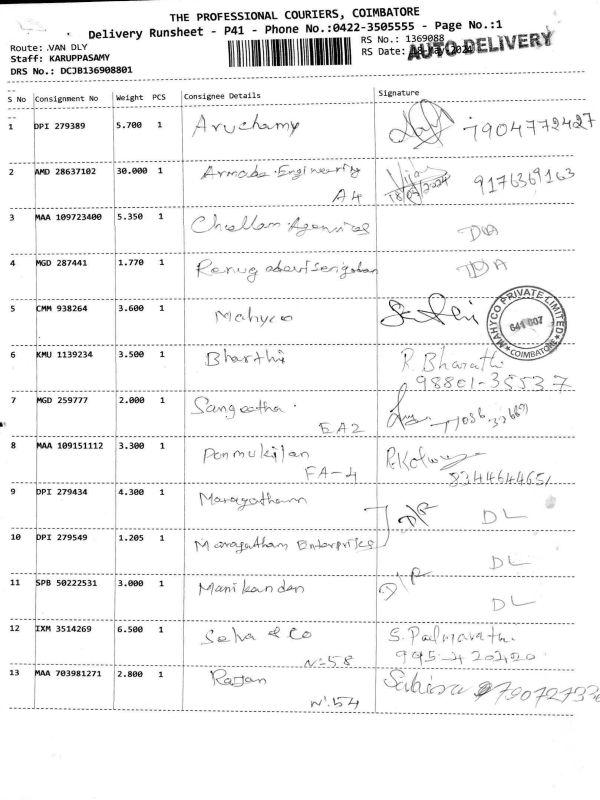 THE PROFESSIONAL COURIERS, COIMBATORE
Delivery Runsheet - P41 - Phone No.:0422-3505555 - Page No.:1
Route: .VAN DLY
RS No.: 1369088
Staff: KARUPPASAMY
RS Date: 18-May-2024
AUTO DELIVERY
DRS No.: DCJB136908801
S No Consignment No Weight PCS Consignee Details Signature
1 DPI 279389 5.700 1 Aruchamy 7904772427
2 AMD 28637102 30.000 1 Armada Engineering 9176369163
A4
3 MAA 109723400 5.350 1 Chellam Agencies
4 MGD 287441 1.770 1
5 CMM 938264 3.600 1 Mahyco
MAHYCO PRIVATE LIMITED
641 007
COIMBATORE
6 KMU 1139234 3.500 1 Bharthi R. Bharathi
98801-35537
7 MGD 259777 2.000 1 Sangeetha
EA2
8 MAA 109151112 3.300 1 Ponmukilan
FA-4 8344644651
9 DPI 279434 4.300 1 Maragatham D/R DL
10 DPI 279549 1.205 1 Maragatham Enterprises DL
11 SPB 50222531 3.000 1 Manikandan D/R DL
12 IXM 3514269 6.500 1 Seha & Co S. Padmavathi
N-58
13 MAA 703981271 2.800 1 Rajan
N-54